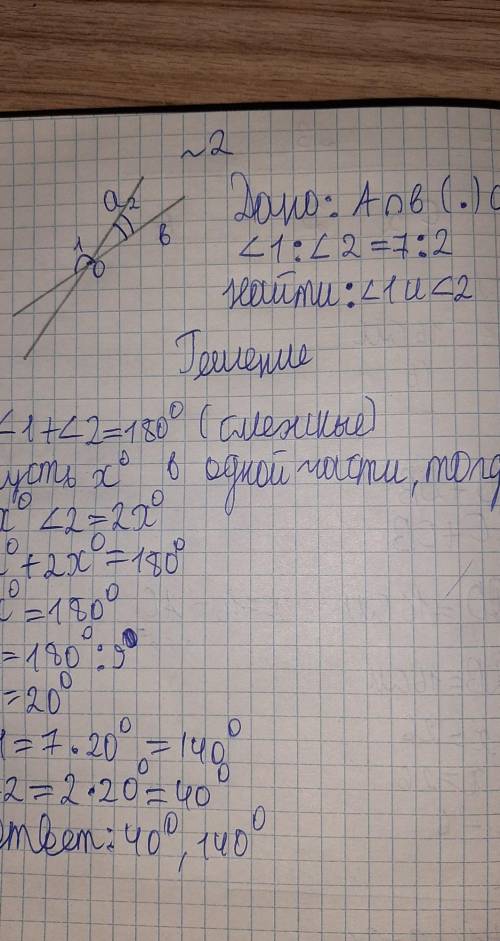 ~2
a 2
в
1
O
Дано: A∩B (.) O
∠1:∠2=7:2
Найти:∠1 и ∠2
Решение
∠1+∠2=180⁰ (смежные)
усть x⁰ в одной части, тогд
x⁰ ∠2=2x⁰
⁰+2x⁰=180⁰
x⁰=180⁰
=180⁰:9
=20⁰
1=7·20⁰=140⁰
2=2·20⁰=40⁰
ответ:40⁰,140⁰